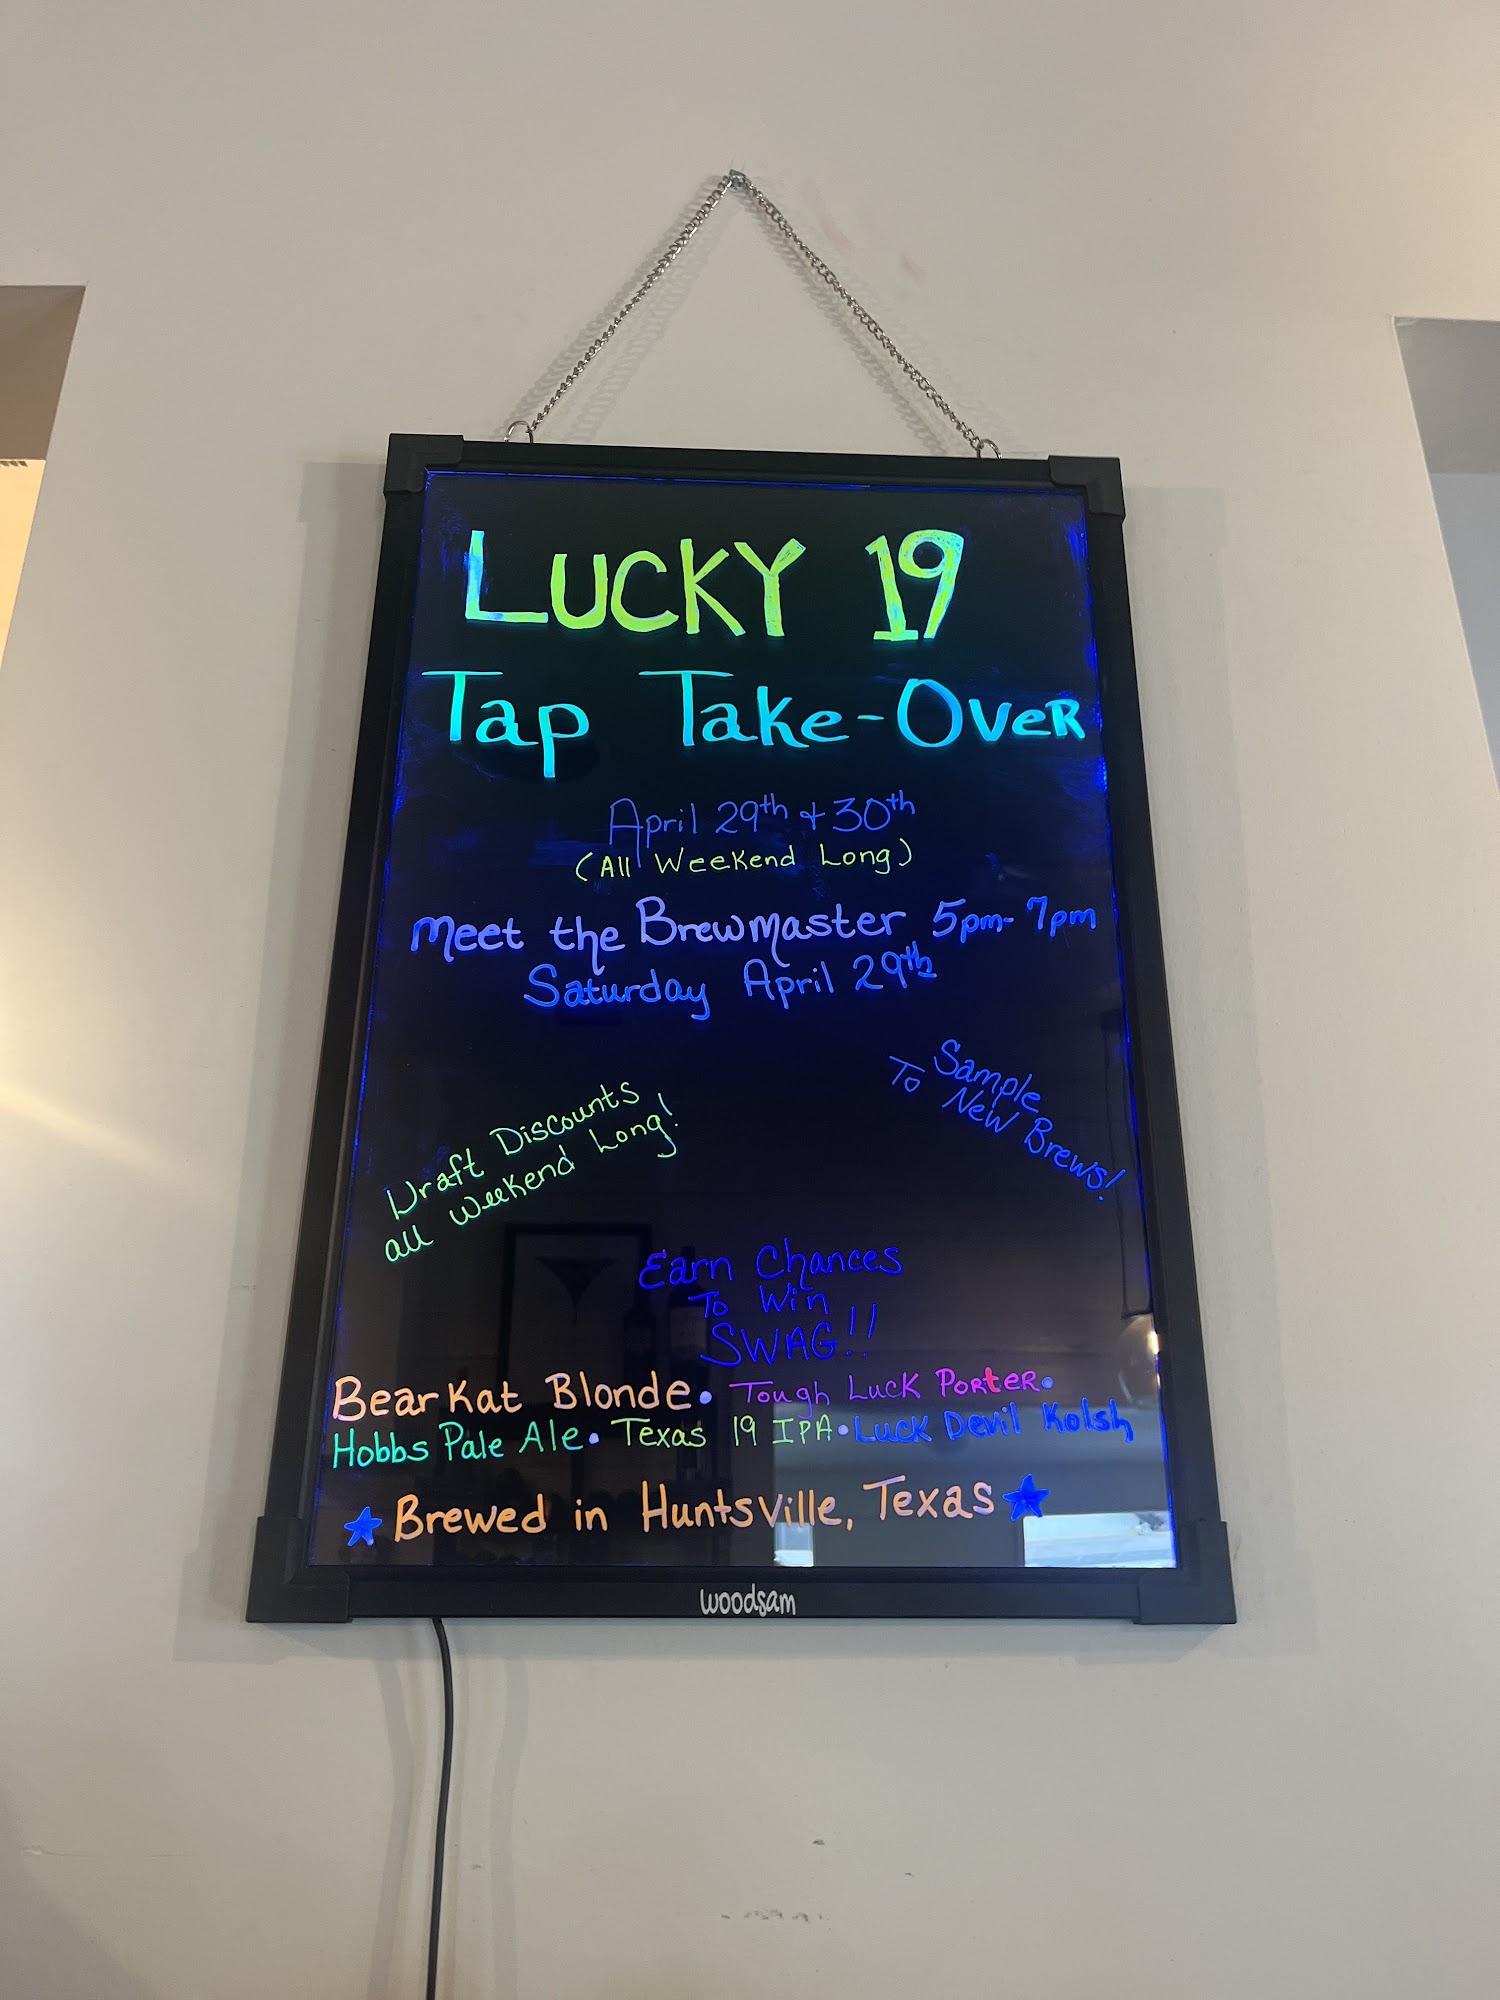 LUCKY 19
Tap Take-Over
April 29th & 30th
(All Weekend Long)
Meet the Brewmaster 5pm-7pm
Saturday April 29th
Sample
To New Brews!
Draft Discounts
all Weekend Long!
Earn Chances
To Win
SWAG!!
Bearkat Blonde • Tough Luck Porter •
Hobbs Pale Ale • Texas 19 IPA • Luck Devil Kolsh
★ Brewed in Huntsville, Texas ★
woodsam